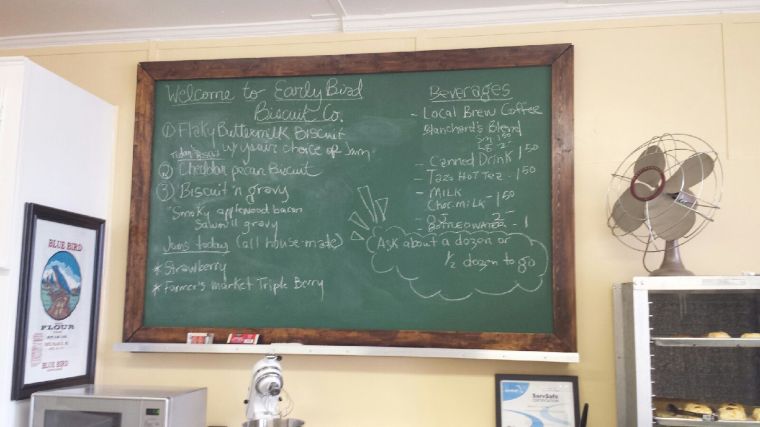 Welcome to Early Bird
Biscuit Co.
1) Flaky Buttermilk Biscuit
w/ your choice of Jam
Today's
2) Cheddar pecan Biscuit
3) Biscuit 'n gravy
"Smoky applewood bacon
sawmill gravy
Jams today (all house-made)
* Strawberry
* Farmer's market Triple Berry
Beverages
- Local Brew Coffee
Blanchard's Blend
- Canned Drink 1.50
- Tazo Hot Tea - 1.50
- Milk
Choc. milk - 1.50
- OJ 2-
- Bottled water - 1
Ask about a dozen or
1/2 dozen to go
BLUE BIRD
FLOUR
BLUE BIRD
ServSafe
CERTIFICATION